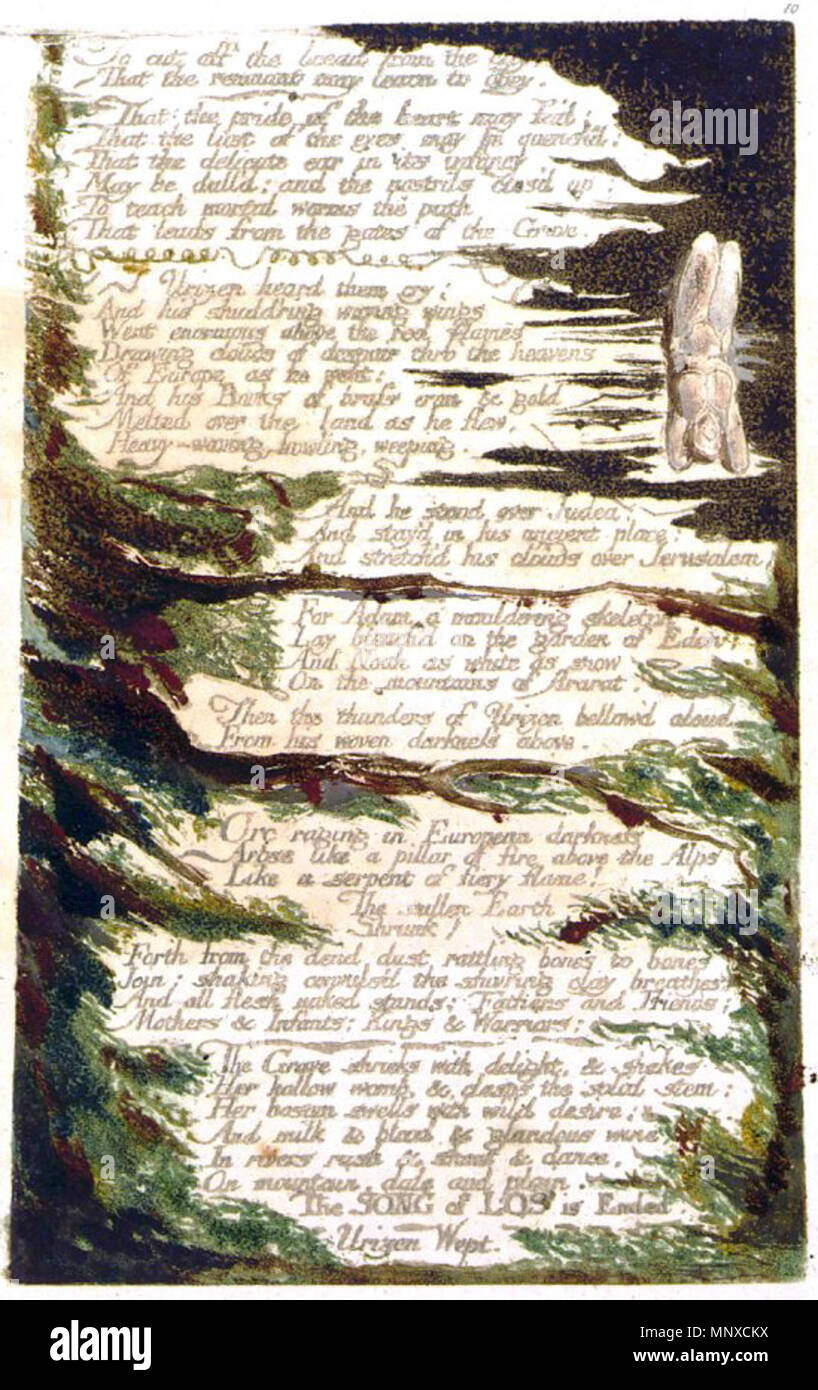 10
To cut off the bread from the city,
That the remnant may learn to obey.
That the pride of the heart may fail;
That the lust of the eyes may be quench'd:
That the delicate ear in its infancy
May be dull'd; and the nostrils clos'd up;
To teach mortal worms the path
That leads from the gates of the Grave.
Urizen heard them cry;
And his shudd'ring waving wings
Went enormous above the red flames
Drawing clouds of despair thro' the heavens
Of Europe as he went:
And his Books of brass iron & gold
Melted over the land as he flew,
Heavy-waving, howling, weeping.
And he stood over Judea:
And stay'd in his ancient place:
And stretch'd his clouds over Jerusalem;
For Adam, a mouldering skeleton
Lay bleach'd on the garden of Eden;
And Noah as white as snow
On the mountains of Ararat.
Then the thunders of Urizen bellow'd aloud
From his woven darkness above.
Orc raging in European darkness
Arose like a pillar of fire above the Alps
Like a serpent of fiery flame!
The sullen Earth
Shrunk!
Forth from the dead dust rattling bones to bones
Join: shaking convuls'd the shiv'ring clay breathes
And all flesh naked stands: Fathers and Friends;
Mothers & Infants; Kings & Warriors;
The Grave shrieks with delight, & shakes
Her hollow womb, & clasps the solid stem:
Her bosom swells with wild desire:
And milk & blood & glandous wine
In rivers rush & shout & dance,
On mountain, dale and plain.
The SONG of LOS is Ended.
Urizen Wept.
alamy
alamy
Image ID: MNXCKX
www.alamy.com